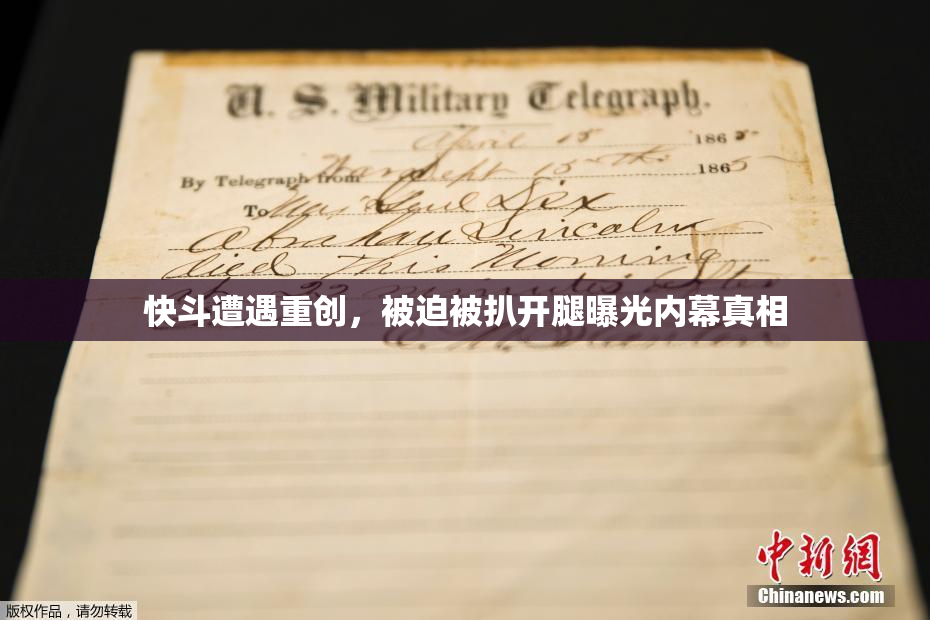 U. S. Military Telegraph.
April 15 1865
By Telegraph from War Dept 15th 1865
To Maj Genl Dix
Abraham Lincoln
died this Morning
22 minutes after
快斗遭遇重创，被迫被扒开腿曝光内幕真相
E. M. Stanton
中新网
Chinanews.com
版权作品，请勿转载